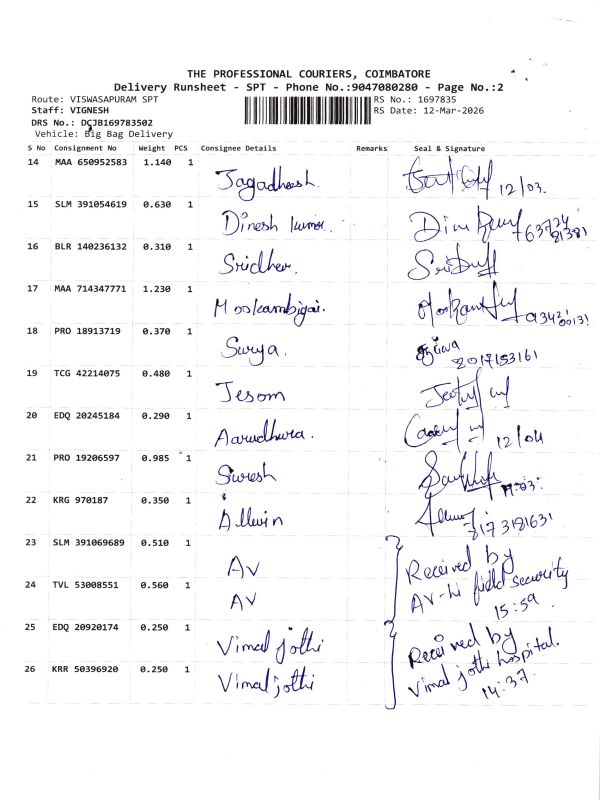 THE PROFESSIONAL COURIERS, COIMBATORE
Delivery Runsheet - SPT - Phone No.:9047080280 - Page No.:2
Route: VISWASAPURAM SPT RS No.: 1697835
Staff: VIGNESH RS Date: 12-Mar-2026
DRS No.: DCJB169783502
Vehicle: Big Bag Delivery
S No Consignment No Weight PCS Consignee Details Remarks Seal & Signature
14 MAA 650952583 1.140 1 Jagadheesh. 12/03.
15 SLM 391054619 0.630 1 Dinesh kumar.
16 BLR 140236132 0.310 1 Sridher.
17 MAA 714347771 1.230 1 Mookambigai.
18 PRO 18913719 0.370 1 Surya. 8017153161
19 TCG 42214075 0.480 1 Jesom
20 EDQ 20245184 0.290 1 Aarudhura. 12/04
21 PRO 19206597 0.985 1 Suresh
22 KRG 970187 0.350 1 Allwin 8173181631
23 SLM 391069689 0.510 1 AV Received by
24 TVL 53008551 0.560 1 AV AV-hi field security
15:59.
25 EDQ 20920174 0.250 1 Vimal jothi Received by
26 KRR 50396920 0.250 1 Vimal jothi Vimal jothi hospital.
14:37.